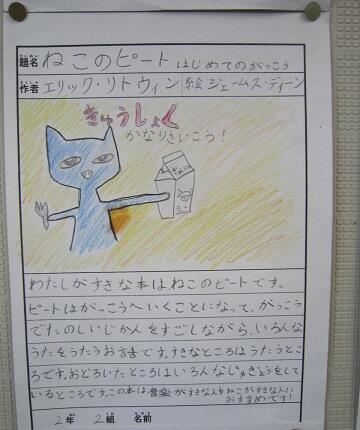 題名 ねこのピート はじめてのがっこう
作者 エリック・リトウィン 絵 ジェームス・ディーン
きゅうしょく
かなりさいこう!
ぎゅうにゅう
わたしがすきな本は、ねこのピートです。
ピートはがっこうへいくことになって、がっこう
でたのしいじかんをすごしながら、いろんな
うたをうたうお話です。すきなところはうたうとこ
ろです。おどろいたところはいろんなじゅぎょうをして
いるところです。この本は、音楽がすきな人やねこがすきな人に
おすすめです!
2年 2組 名前